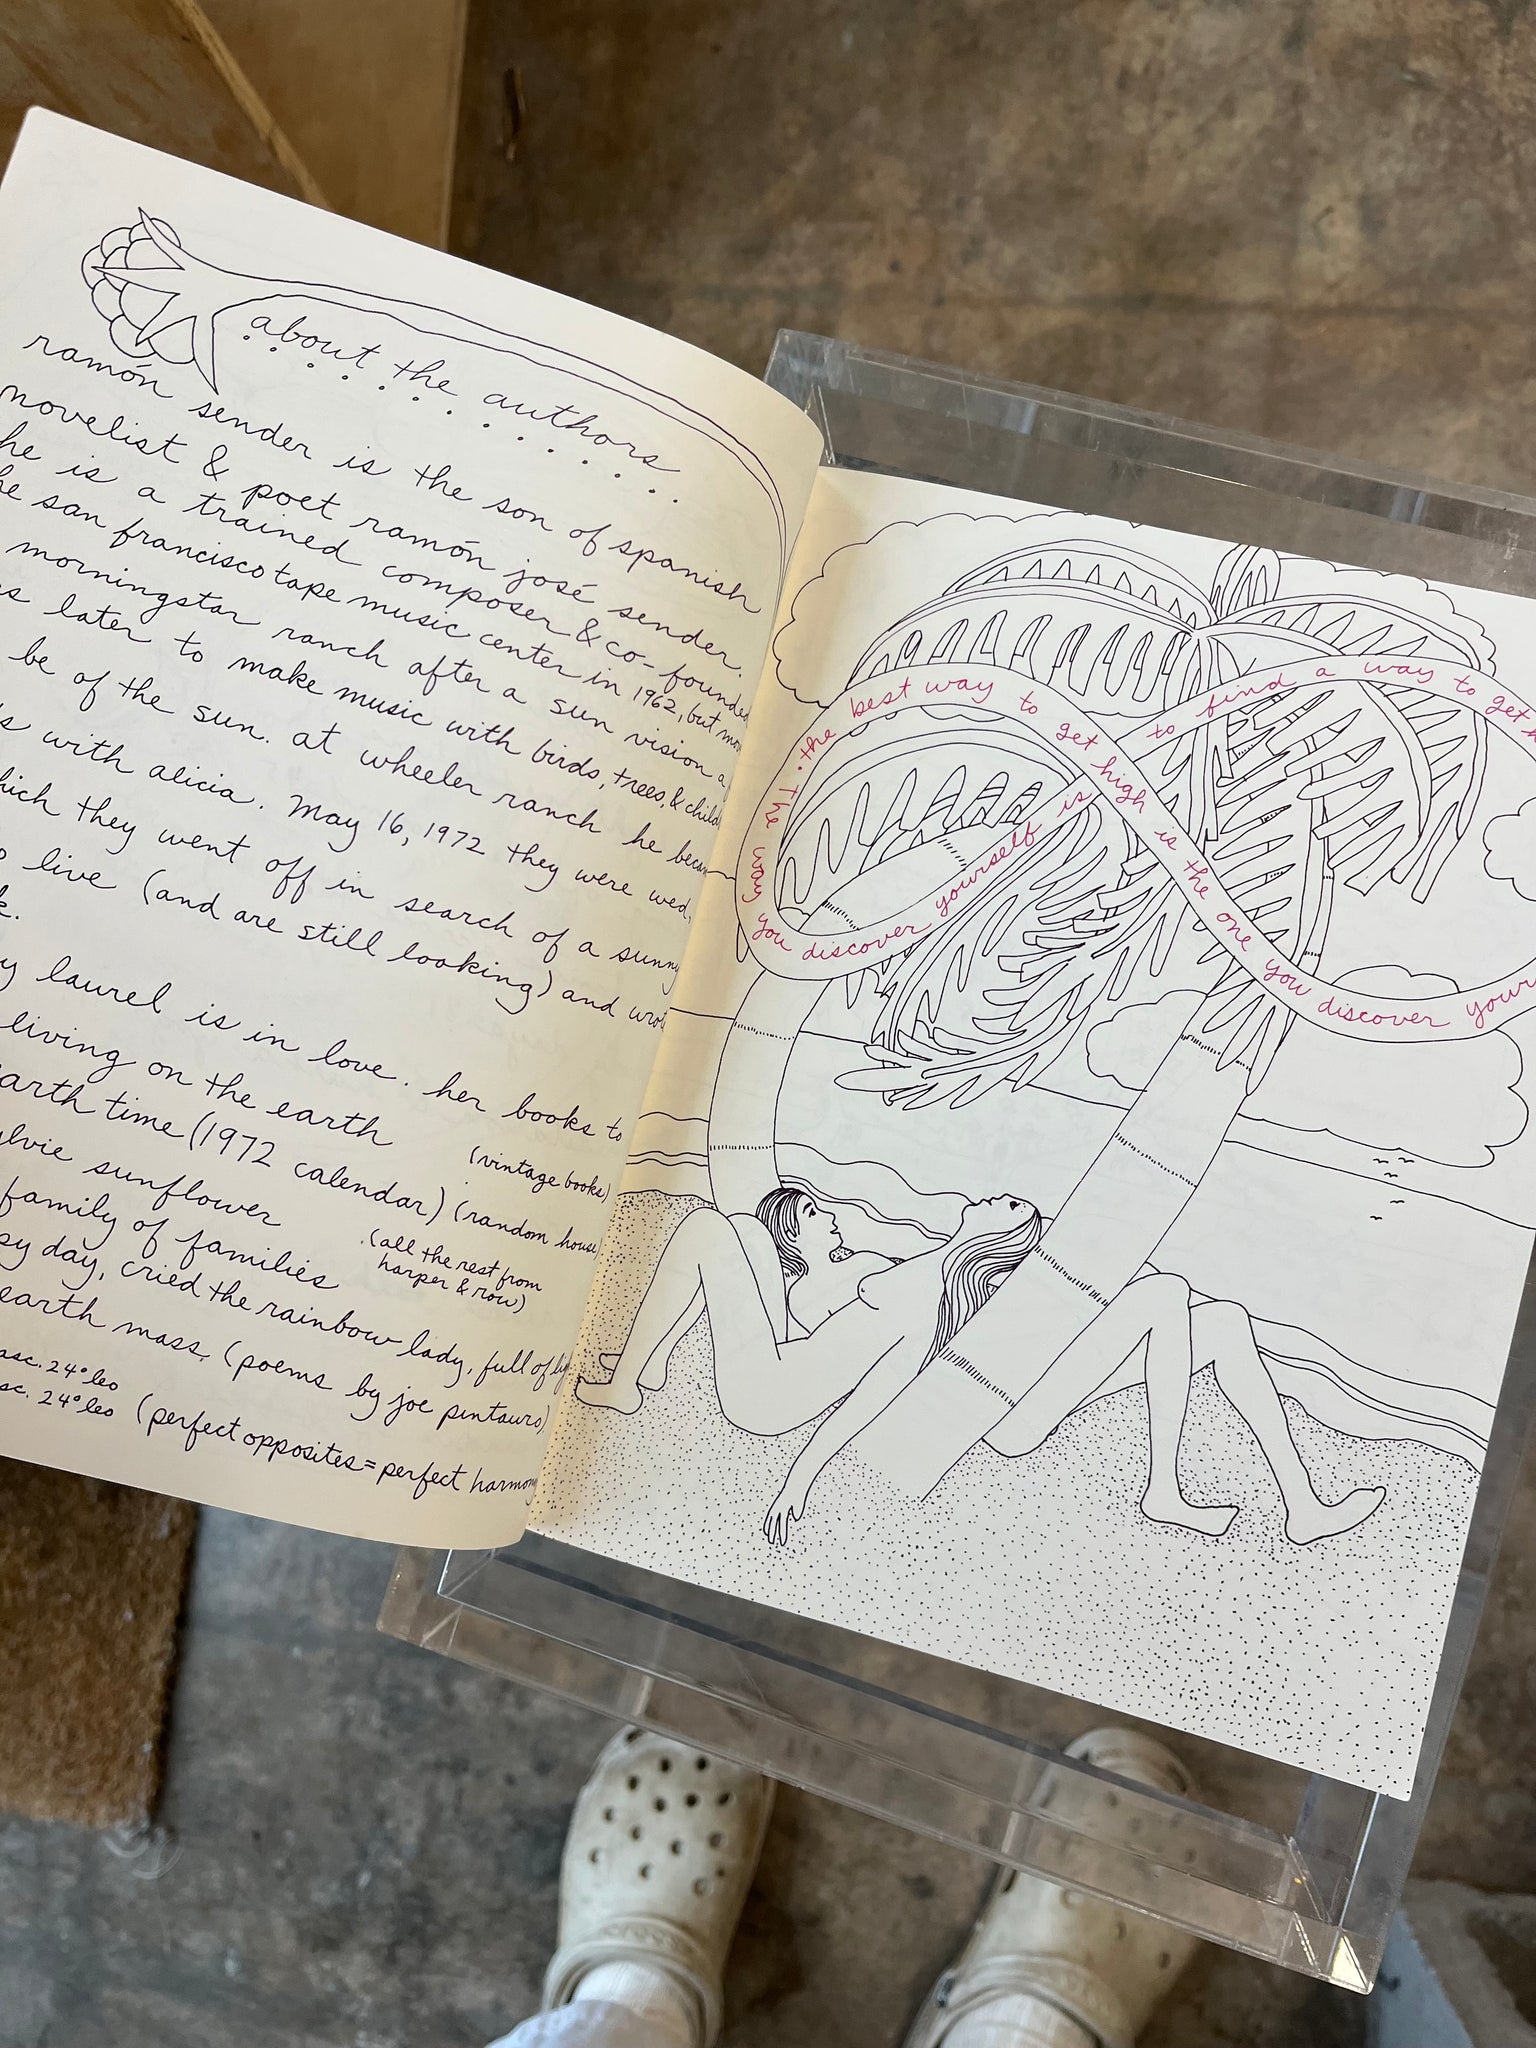 about the authors
ramón sender is the son of spanish
novelist & poet ramón josé sender.
he is a trained composer & co-founded
he san francisco tape music center in 1962, but mo
morningstar ranch after a sun vision a
s later to make music with birds, trees, & child
be of the sun. at wheeler ranch he becam
s with alicia. May 16, 1972 they were wed,
hich they went off in search of a sunny
o live (and are still looking) and wrote
k.
y laurel is in love. her books to
living on the earth (vintage books)
arth time (1972 calendar) (random house)
ylvie sunflower (all the rest from
family of families harper & row)
py day, cried the rainbow lady, full of li
earth mass, (poems by joe pintauro)
asc. 24° leo
sc. 24° leo (perfect opposites = perfect harmony
the best way to get high is the one you discover your
to find a way to get h
The way you discover yourself is